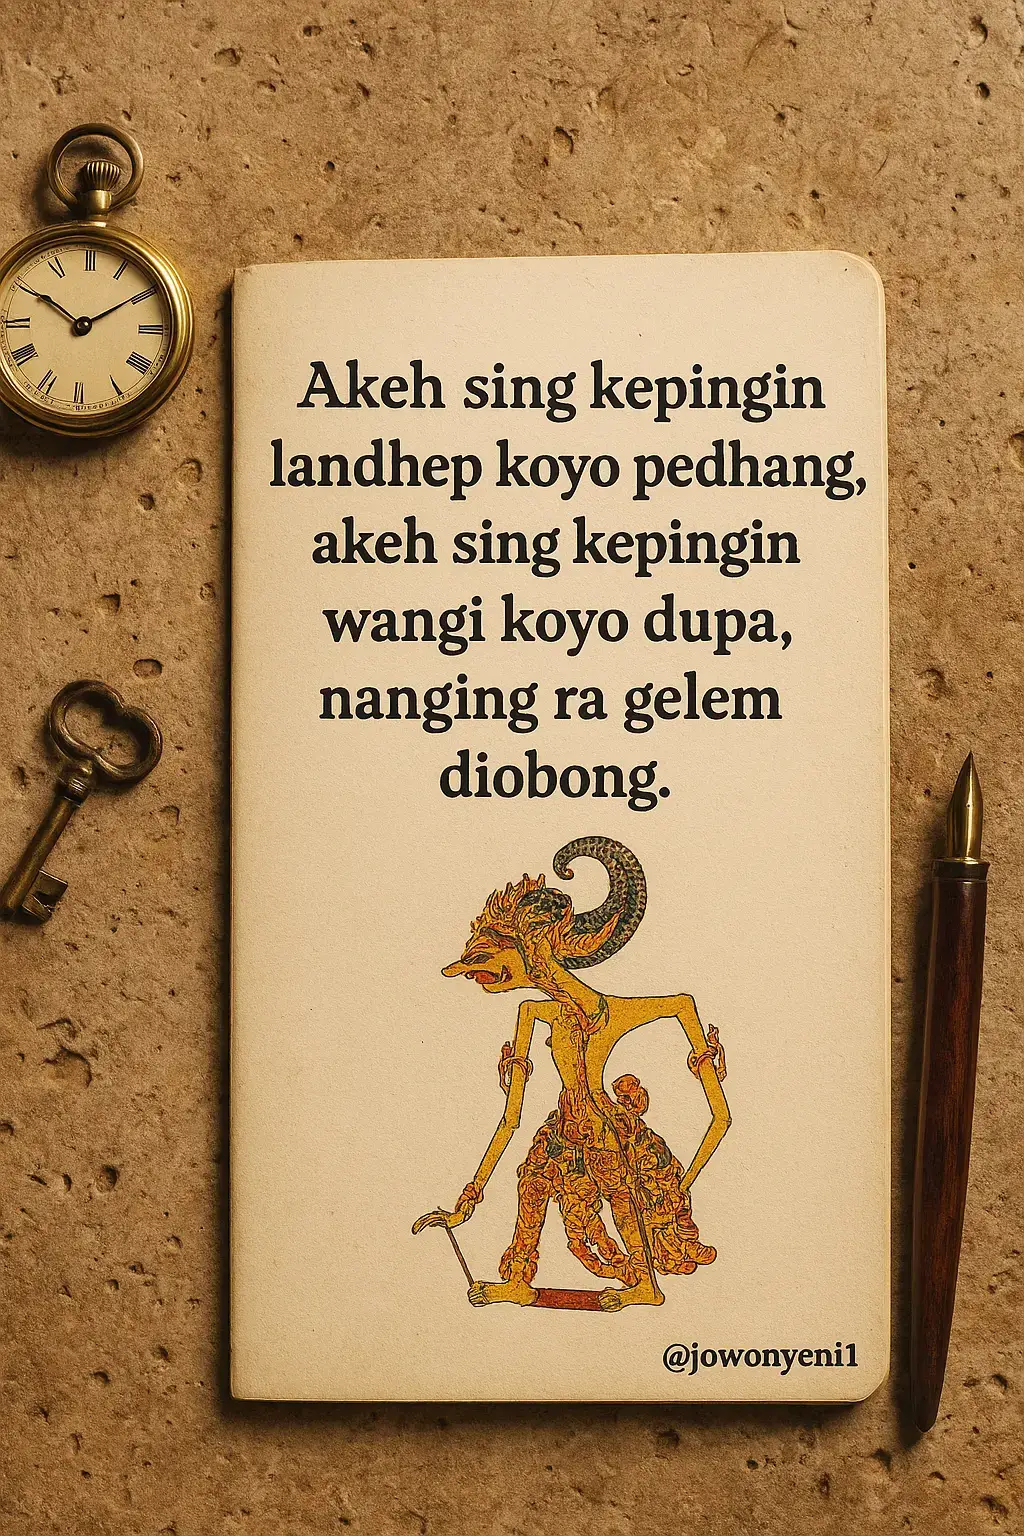 Akeh sing kepingin
landhep koyo pedhang,
akeh sing kepingin
wangi koyo dupa,
nanging ra gelem
diobong.
@jowonyeni1